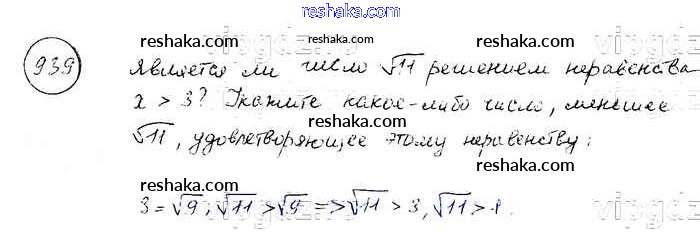 reshaka.com
939
reshaka.com reshaka.com
Является ли число √11 решением неравенства
reshaka.com reshaka.com
x > 3? Укажите какое-либо число, меньшее
√11, удовлетворяющее этому неравенству:
reshaka.com reshaka.com
3 = √9, √11 > √9 => √11 > 3, √11 > 1.
reshaka.com